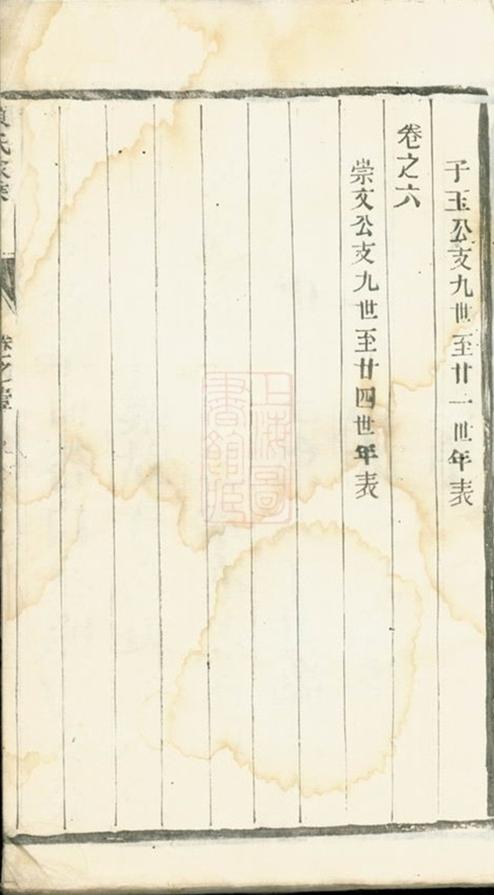 子玉公支九世至廿一世年表
卷之六
崇文公支九世至廿四世年表
上海图
书馆藏
氏家乘
卷之壹